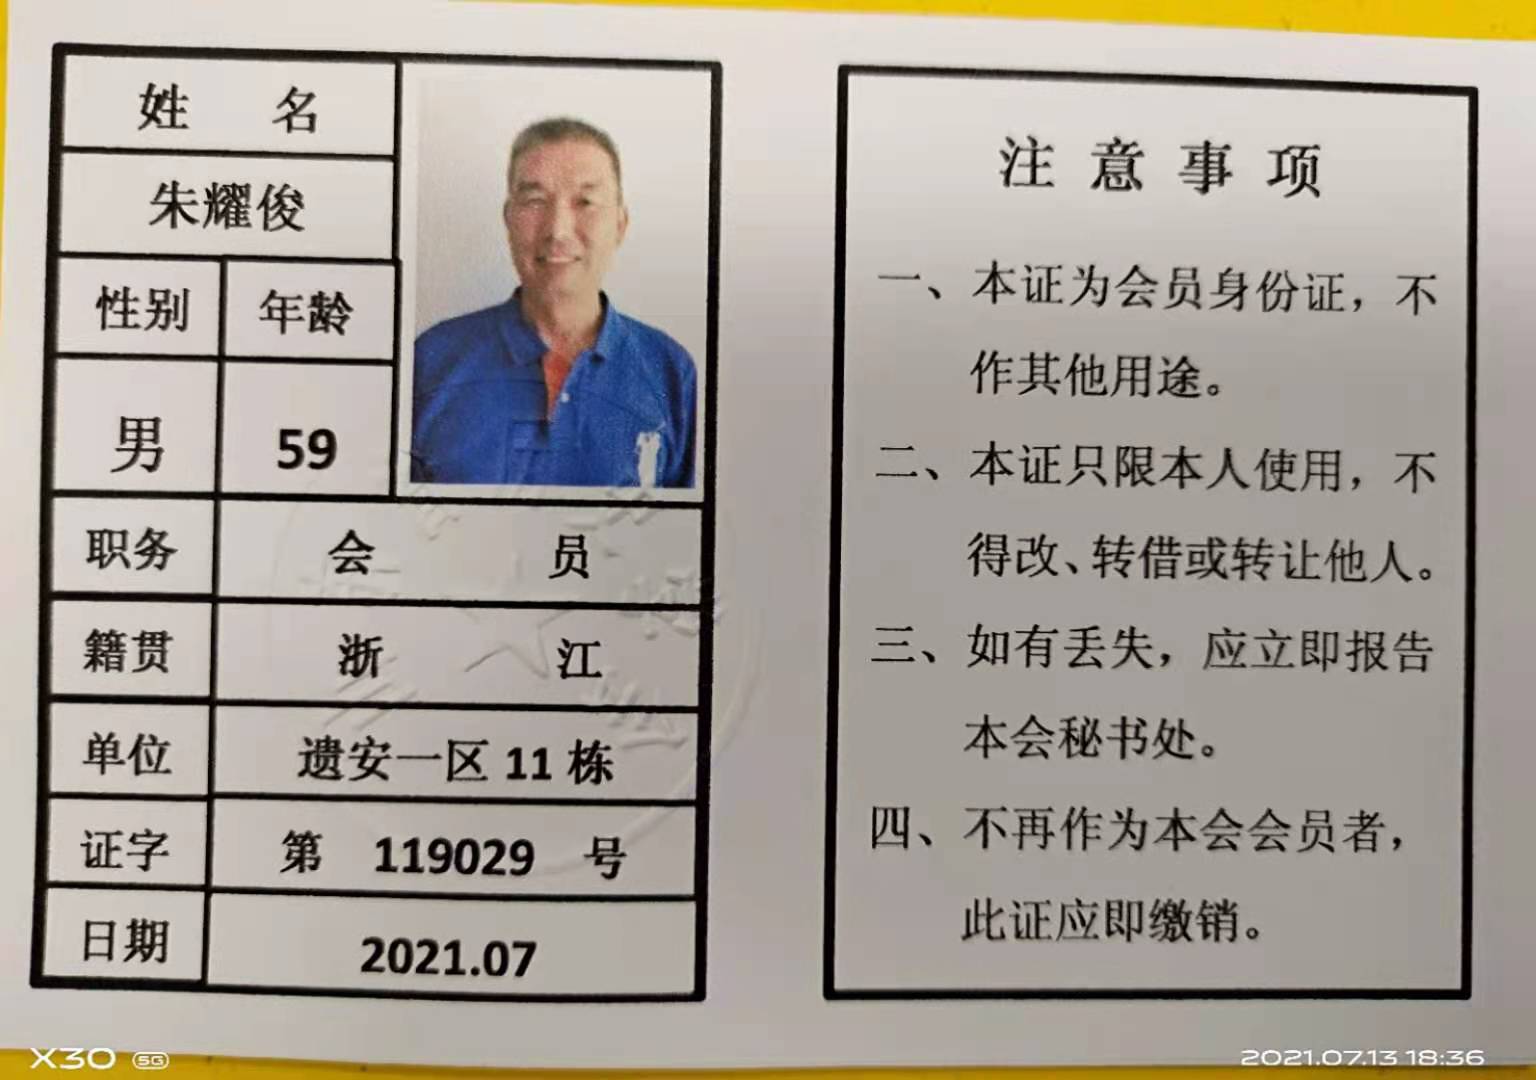 姓 名
朱耀俊
性别 年龄
男 59
职务 会 员
籍贯 浙 江
单位 遗安一区 11 栋
证字 第 119029 号
日期 2021.07
注 意 事 项
一、本证为会员身份证，不
作其他用途。
二、本证只限本人使用，不
得改、转借或转让他人。
三、如有丢失，应立即报告
本会秘书处。
四、不再作为本会会员者，
此证应即缴销。
X30 5G
2021.07.13 18:36